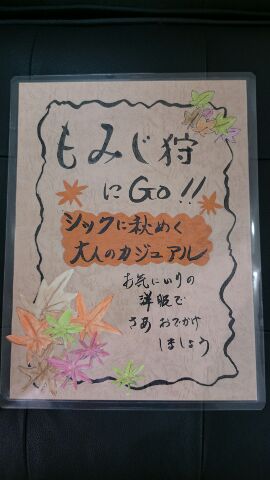 もみじ狩
にGo!!
シックに秋めく
大人のカジュアル
お気にいりの
洋服で
さあ おでかけ
しましょう